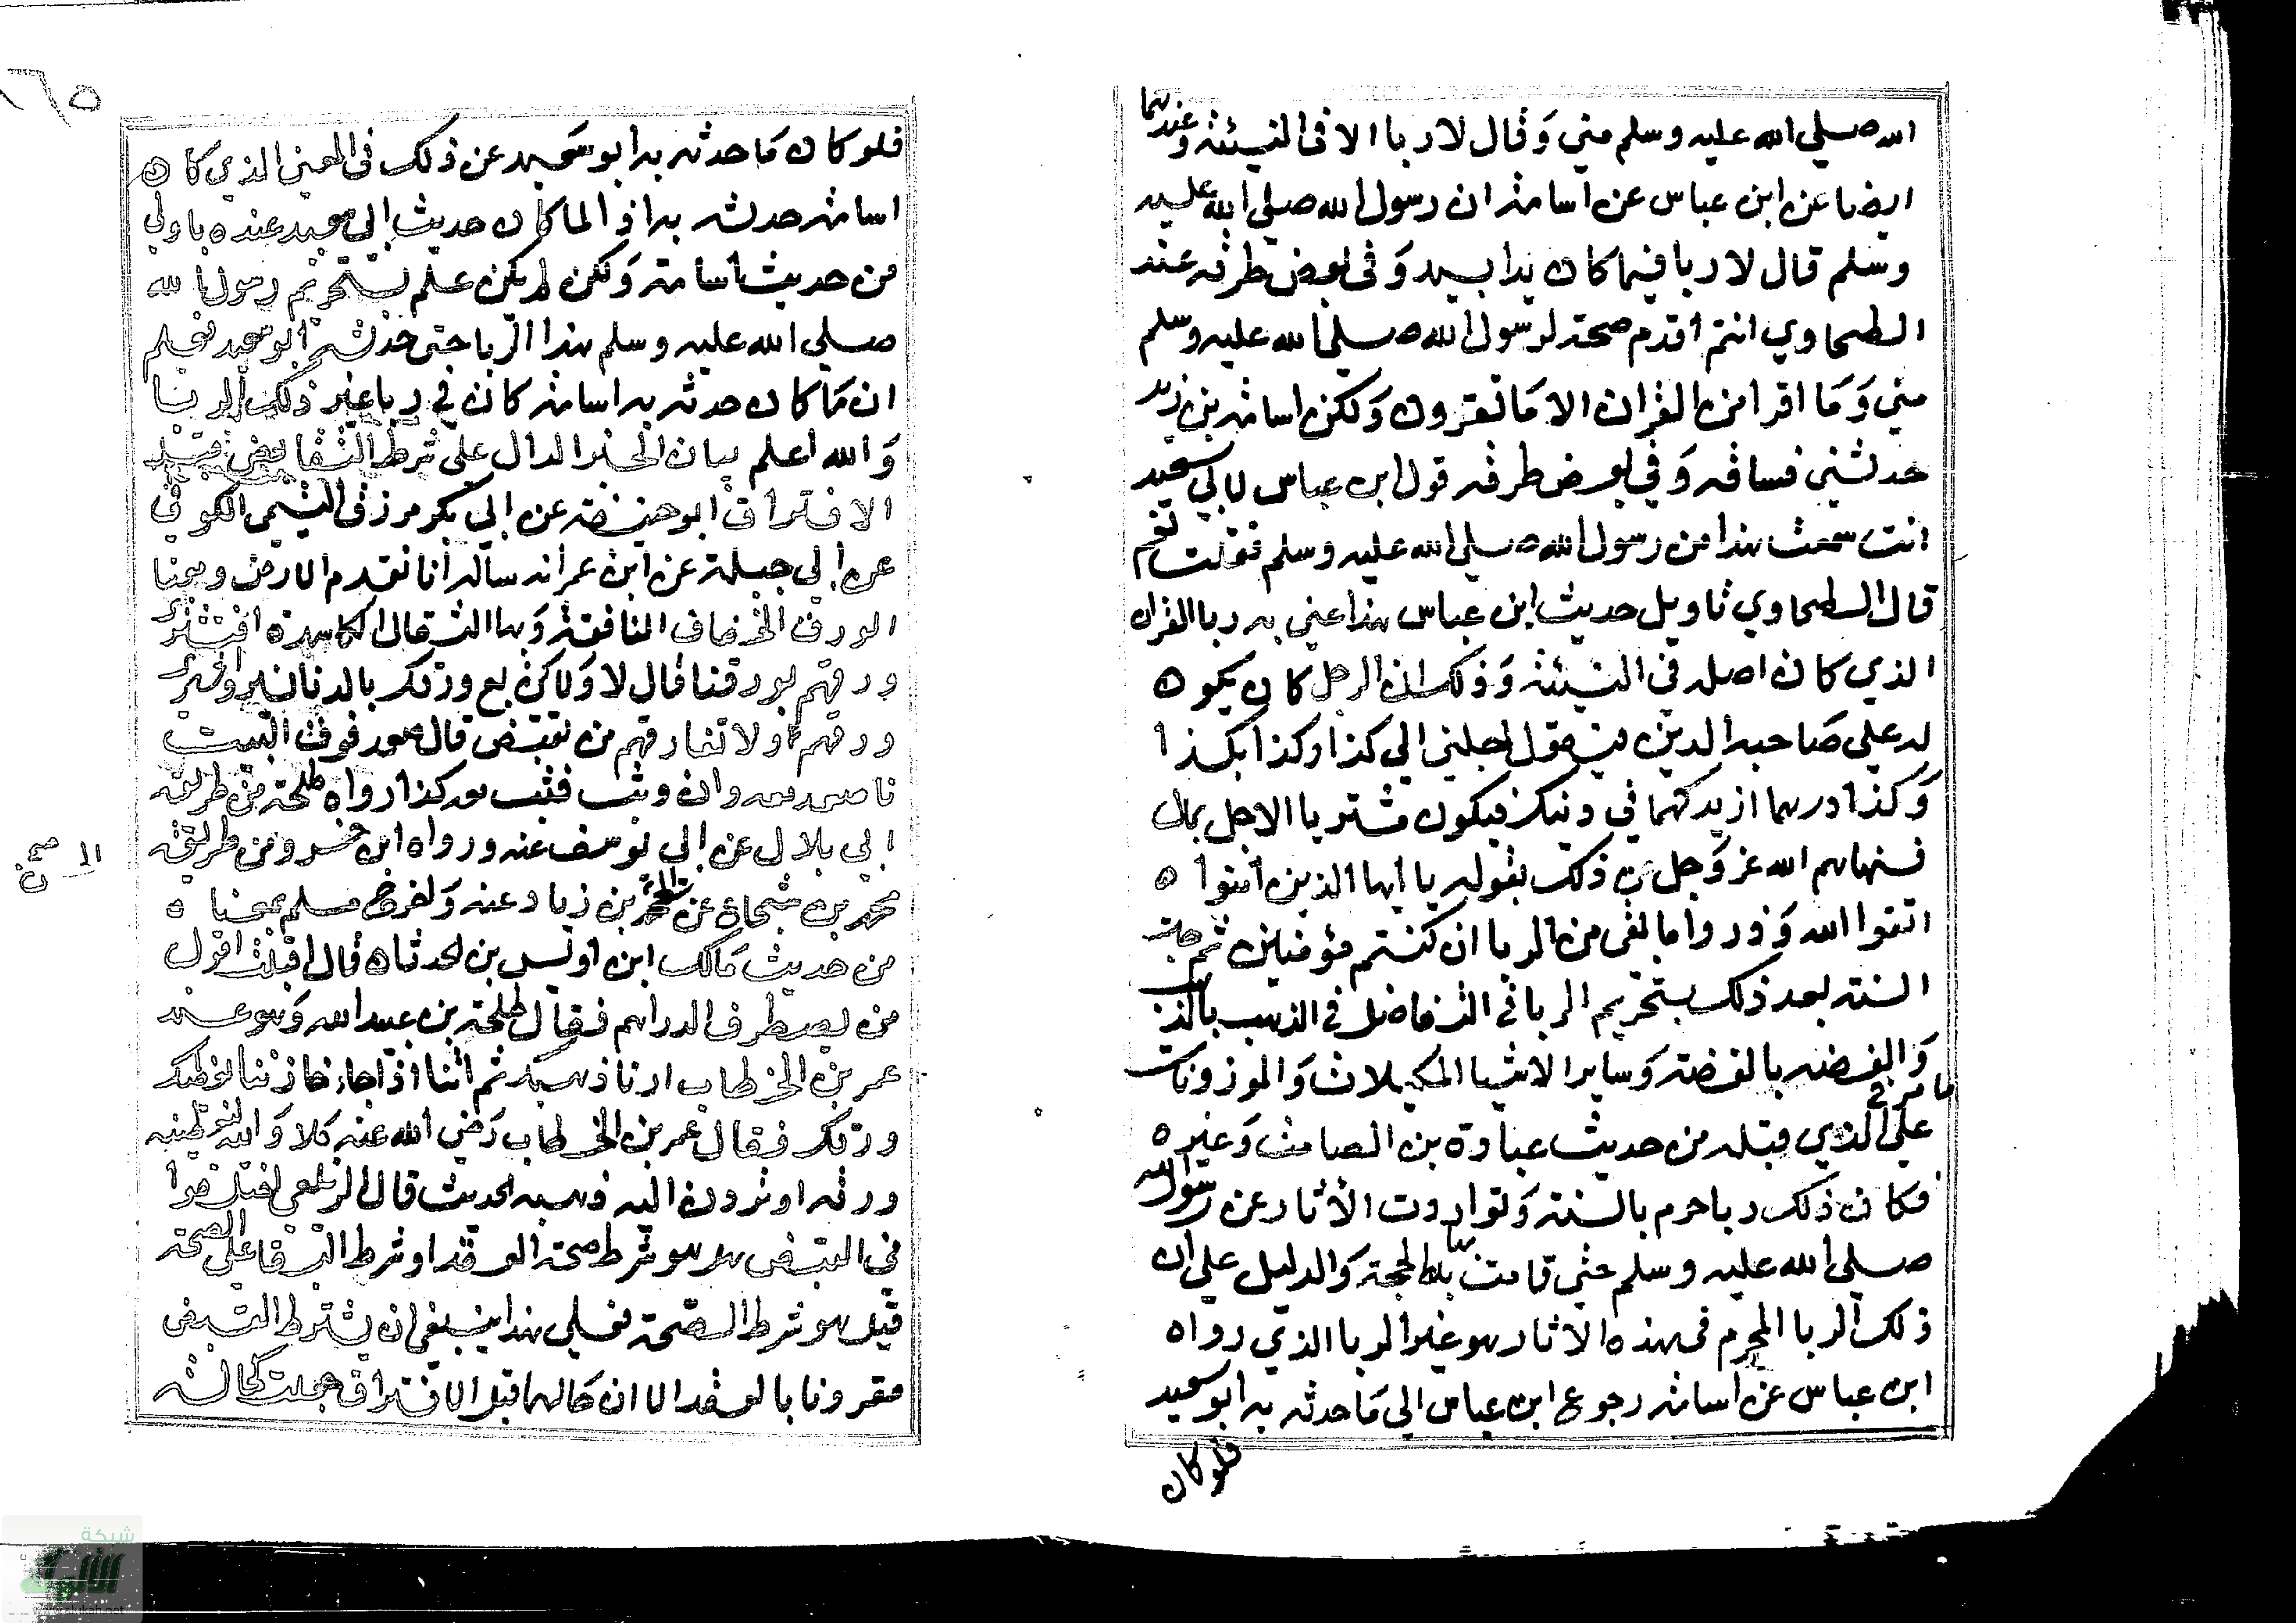 الله صلي الله عليه وسلم مني وقال لا ربا الا في النسيئة وعندهما
ايضا عن ابن عباس عن اسامة ان رسول الله صلي الله عليه
وسلم قال لا ربا فيما كان يدا بيد وفي بعض طرقه عند
الطحاوي انتم اقدم صحبة لرسول الله صلي الله عليه وسلم
مني وما اقرا من القران الا ما تقرون ولكن اسامة بن زيد
حدثني فساقه وفي بعض طرقه قول ابن عباس لابي سعيد
انت سمعت هذا من رسول الله صلي الله عليه وسلم فقلت نعم
قال الطحاوي تاويل حديث ابن عباس هذا عني به ربا القران
الذي كان اصله في النسيئة وذلك ان الرجل كان يكون
له علي صاحبه الدين فيقول اجلني الي كذا وكذا بكذا
وكذا درهما ازيدكهما في دينك فيكون مشتريا الاجل بمال
فنهاهم الله عز وجل عن ذلك بقوله يا ايها الذين امنوا
اتقوا الله وذروا ما بقي من الربا ان كنتم مؤمنين ثم جاءت
السنة بعد ذلك بتحريم الربا في التفاضل في الذهب بالذهب
والفضة بالفضة وساير الاشيا المكيلات والموزونات
علي الذي قبله من حديث عبادة بن الصامت وغيره
ما مر
فكان ذلك ربا حرم بالسنة وتواردت الاثار عن رسول الله
صلي الله عليه وسلم حتي قامت بها الحجة والدليل علي ان
ذلك الربا المحرم في هذه الاثار هو غير الربا الذي رواه
ابن عباس عن اسامة رجوع ابن عباس الي ما حدثه به ابو سعيد
فلو كان
٨٦٥
فلو كان ما حدثه به ابو سعيد عن ذلك في المعني الذي كان
اسامة حدثه به اذا لما كان حديث ابي سعيد عنده باولي
من حديث اسامة ولكن لم يكن علم بتحريم رسول الله
صلي الله عليه وسلم هذا الربا حتي حدثه ابو سعيد فعلم
ان ما كان حدثه به اسامة كان في ربا غير ذلك الربا
والله اعلم بيان الخبر الدال علي شرط التقابض قبل
الافتراق ابو حنيفة عن ابي بكر مرزق التيمي الكوفي
عن ابي جبلة عن ابن عمر انه ساله انا نقدم الارض ومعنا
الورق الخفاف النافقة وبها الثقال الكاسدة افنشتري
ورقهم بورقنا قال لا ولاكن بع ورقك بالدنانير واشتر
ورقهم ولا تفارقهم من تقبض قال صعد فوق البيت
فاصعد معه وان وثب فثب معه كذا رواه طلحة من طريق
ابي بلال عن ابي يوسف عنه ورواه ابن خسرو من طريق
محمد بن شجاع عن الحسن بن زياد عنه واخرج مسلم بمعناه
من حديث مالك ابن اوس بن الحدثان قال اقبلت اقول
من يصطرف الدراهم فقال طلحة بن عبيد الله وهو عند
عمر بن الخطاب ارنا ذهبك ثم اتنا اذا جاء خازننا نوطيك
ورقك فقال عمر بن الخطاب رضي الله عنه كلا والله لتوطينه
ورقه او تردن اليه ذهبه الحديث قال الزيلعي اختلفوا
في القبض هل هو شرط صحة العقد او شرط البقا علي الصحة
قيل هو شرط الصحة فعلي هذا ينبغي ان يشترط القبض
مقرونا بالعقد الا ان حالهما قبل الافتراق جعلت كحالة